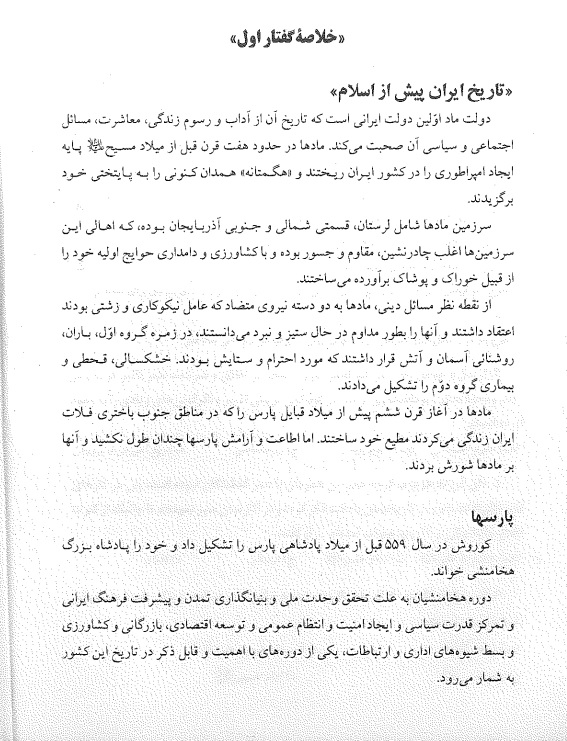 «خلاصهٔ گفتار اول»
«تاریخ ایران پیش از اسلام»
دولت ماد اوّلین دولت ایرانی است که تاریخ آن از آداب و رسوم زندگی، معاشرت، مسائل
اجتماعی و سیاسی آن صحبت می‌کند. مادها در حدود هفت قرن قبل از میلاد مسیح پایه
ایجاد امپراطوری را در کشور ایران ریختند و «هگمتانه» همدان کنونی را به پایتختی خود
برگزیدند.
سرزمین مادها شامل لرستان، قسمتی شمالی و جنوبی آذربایجان بوده، که اهالی این
سرزمین‌ها اغلب چادرنشین، مقاوم و جسور بوده و با کشاورزی و دامداری حوایج اولیه خود را
از قبیل خوراک و پوشاک برآورده می‌ساختند.
از نقطه نظر مسائل دینی، مادها به دو دسته نیروی متضاد که عامل نیکوکاری و زشتی بودند
اعتقاد داشتند و آنها را بطور مداوم در حال ستیز و نبرد می‌دانستند، در زمره گروه اوّل، باران،
روشنائی آسمان و آتش قرار داشتند که مورد احترام و ستایش بودند. خشکسالی، قحطی و
بیماری گروه دوّم را تشکیل می‌دادند.
مادها در آغاز قرن ششم پیش از میلاد قبایل پارس را که در مناطق جنوب باختری فلات
ایران زندگی می‌کردند مطیع خود ساختند. اما اطاعت و آرامش پارسها چندان طول نکشید و آنها
بر مادها شورش بردند.
پارسها
کوروش در سال ۵۵۹ قبل از میلاد پادشاهی پارس را تشکیل داد و خود را پادشاه بزرگ
هخامنشی خواند.
دوره هخامنشیان به علت تحقق وحدت ملی و بنیانگذاری تمدن و پیشرفت فرهنگ ایرانی
و تمرکز قدرت سیاسی و ایجاد امنیت و انتظام عمومی و توسعه اقتصادی، بازرگانی و کشاورزی
و بسط شیوه‌های اداری و ارتباطات، یکی از دوره‌های با اهمیت و قابل ذکر در تاریخ این کشور
به شمار می‌رود.